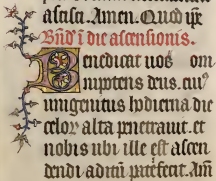 ascisci. Amen. Quod ip̄e
Bn̄d' ī die ascensionis.
Benedicat uos om
nipotens deus. cui'
unigenitus hodierna die
celoꝝ alta penetrauit. et
nobis ubi ille est ascen
dendi aditū patefecit. Am̄